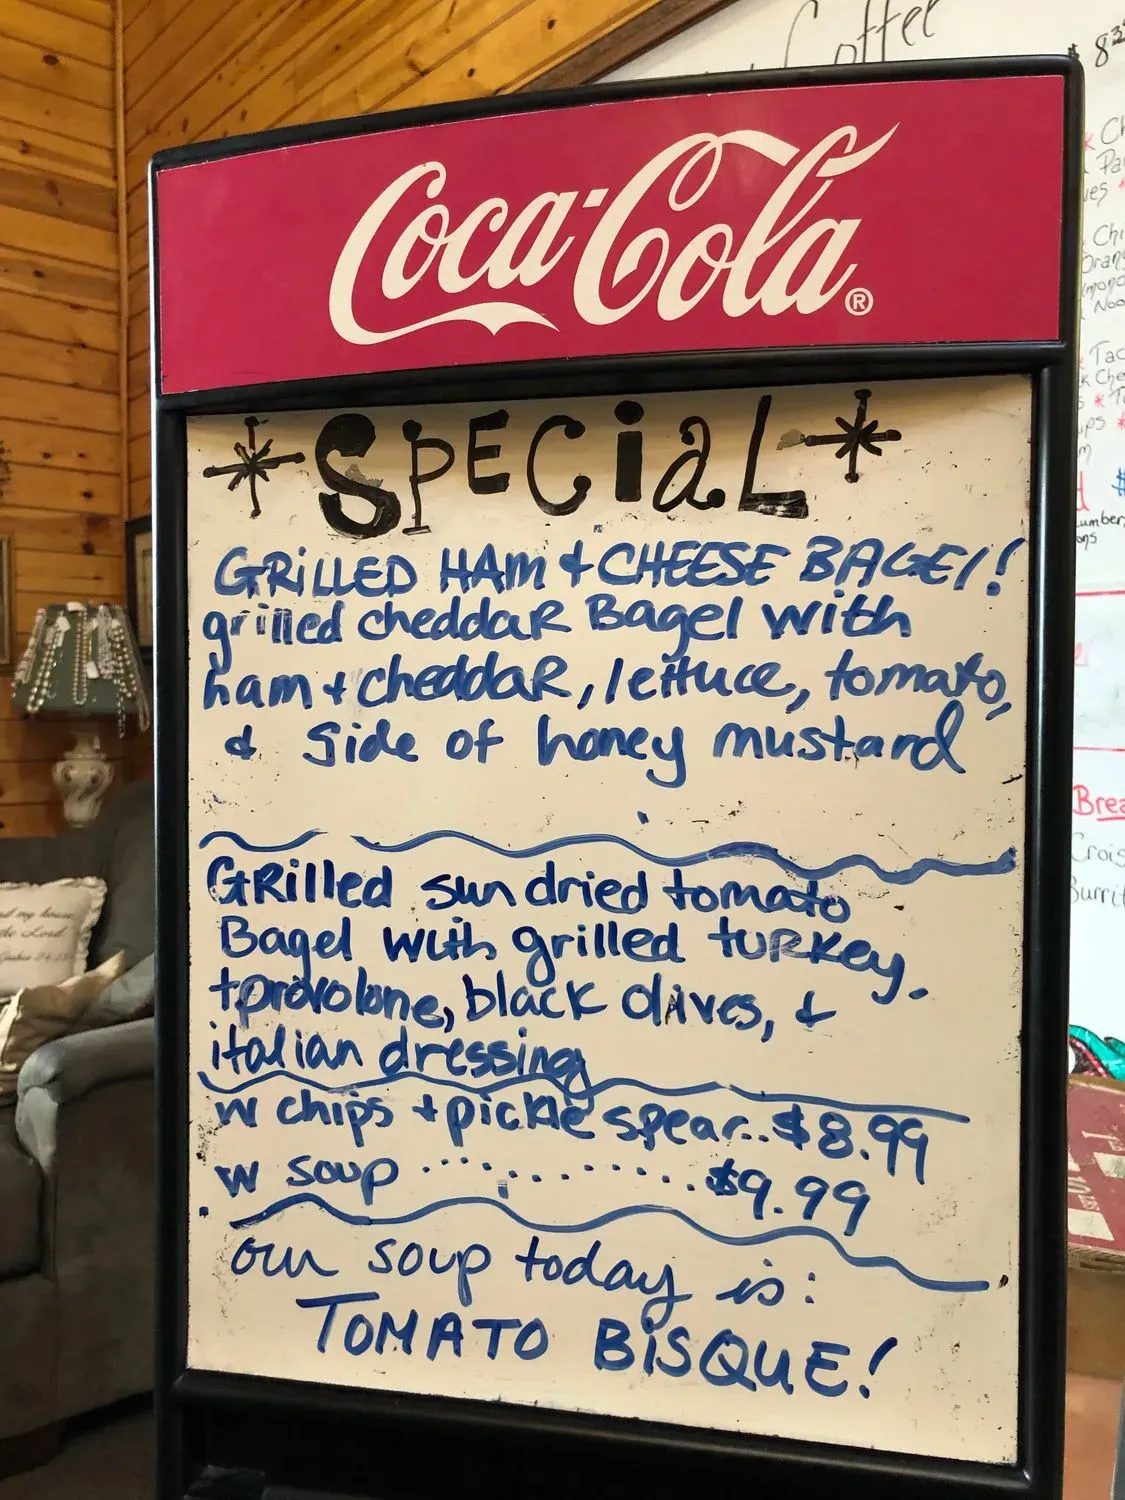 Coffee
$ 8
Coca-Cola®
*SPECiaL*
GRiLLED HAm + CHEESE BAGEL!
grilled cheddaR Bagel with
ham + cheddaR, lettuce, tomato,
& side of honey mustard
GRilled sun dried tomato
Bagel with grilled tuRKey.
+ provolone, black olives, +
italian dressing
w chips + pickle spear..$8.99
w soup ...............$9.99
our soup today is:
TOMATO BiSQUE!